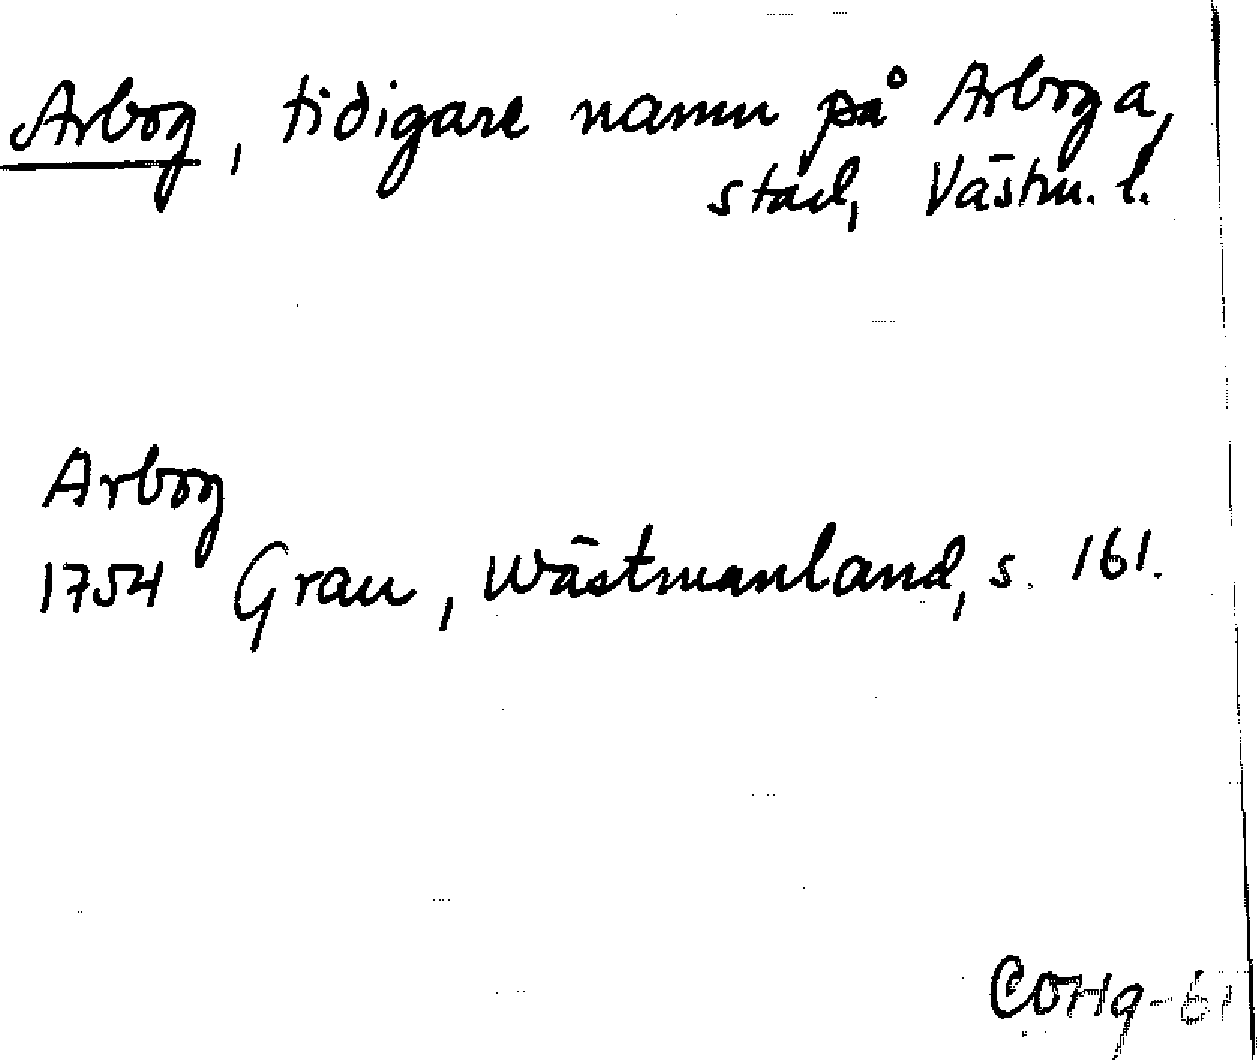 Arbog, tidigare namn på Arboga,
stad, Västm. l.
Arbog
1754 Grau, Wästmanland, s. 161.
COHg-61